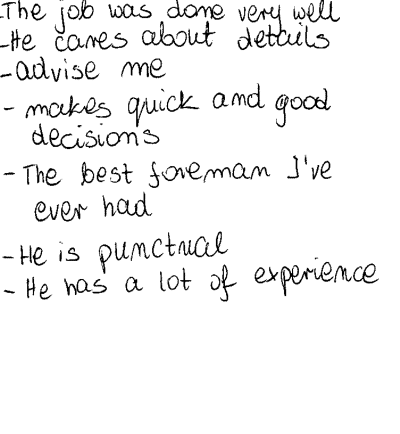 -The job was done very well
-He cares about details
-advise me
- makes quick and good
decisions
- The best foreman I've
ever had
- He is punctual
- He has a lot of experience